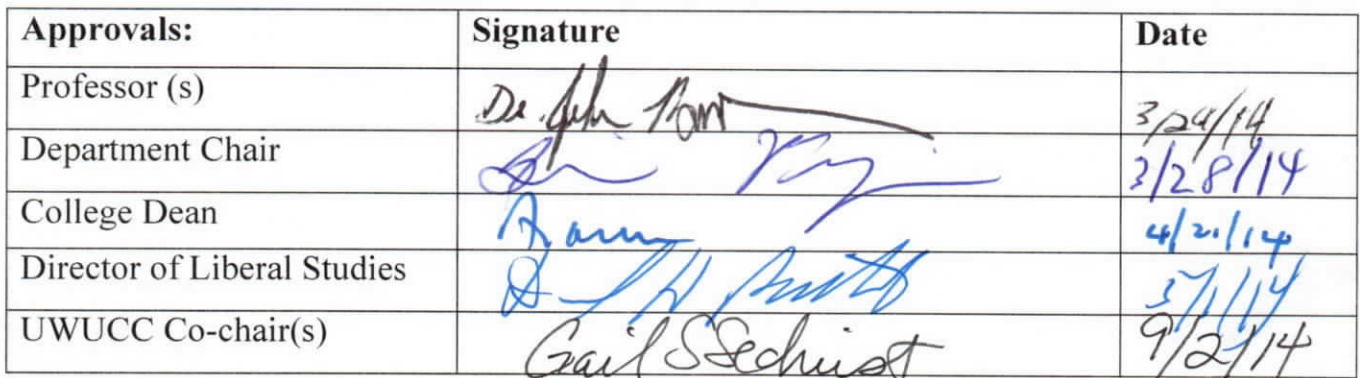 Approvals: Signature Date
Professor (s) Dr. John 3/24/14
Department Chair 3/28/14
College Dean 4/21/14
Director of Liberal Studies 5/1/14
UWUCC Co-chair(s) Gail S Sechrist 9/2/14